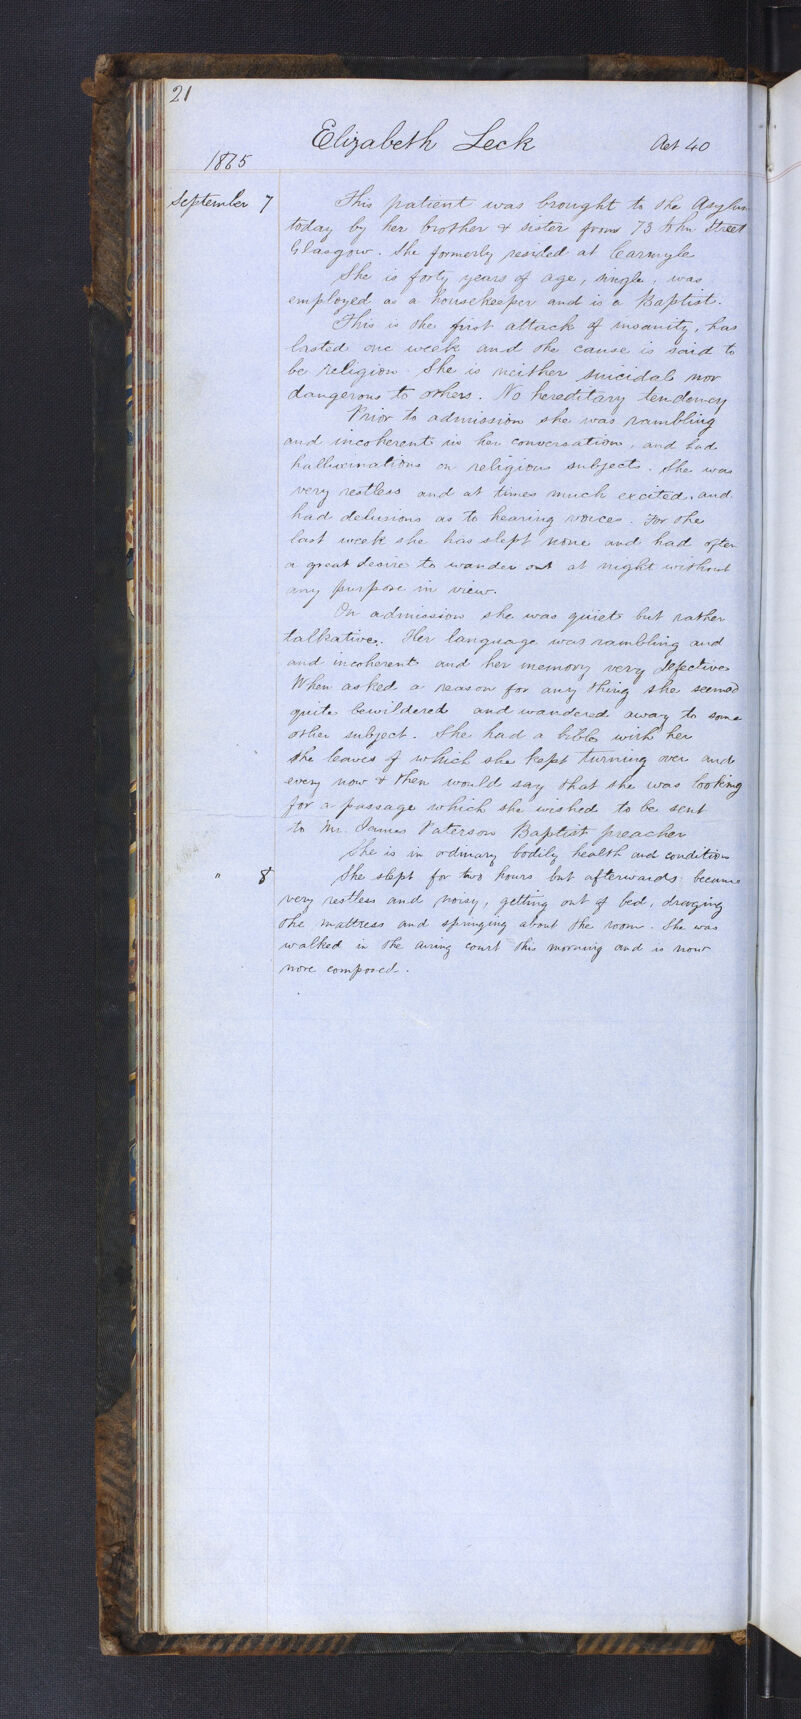 21
Elizabeth Leck Aet 40
1865
September 7 This patient was brought to the Asylum
today by her brother & sister from 73 John Street
Glasgow. She formerly resided at Carmyle
She is forty years of age, single, was
employed as a housekeeper and is a Baptist.
This is the first attack of insanity, has
lasted one week and the cause is said to
be religion. She is neither suicidal nor
dangerous to others. No hereditary tendency
Prior to admission she was rambling
and incoherent in her conversation, and had
hallucinations on religious subjects. She was
very restless and at times much excited, and
had delusions as to hearing voices. For the
last week she has slept none and had often
a great desire to wander out at night without
any purpose in view.
On admission she was quiet but rather
talkative. Her language was rambling and
and incoherent and her memory very defective
When asked a reason for any thing she seemed
quite bewildered and wandered away to some
other subject. She had a bible with her
the leaves of which she kept turning over and
every now & then would say that she was looking
for a passage which she wished to be sent
to Mr. James Paterson Baptist preacher
She is in ordinary bodily health and condition
" 8 She slept for two hours but afterwards became
very restless and noisy, getting out of bed, draging
the mattress and springing about the room. She was
walked in the airing court this morning and is now
more composed.